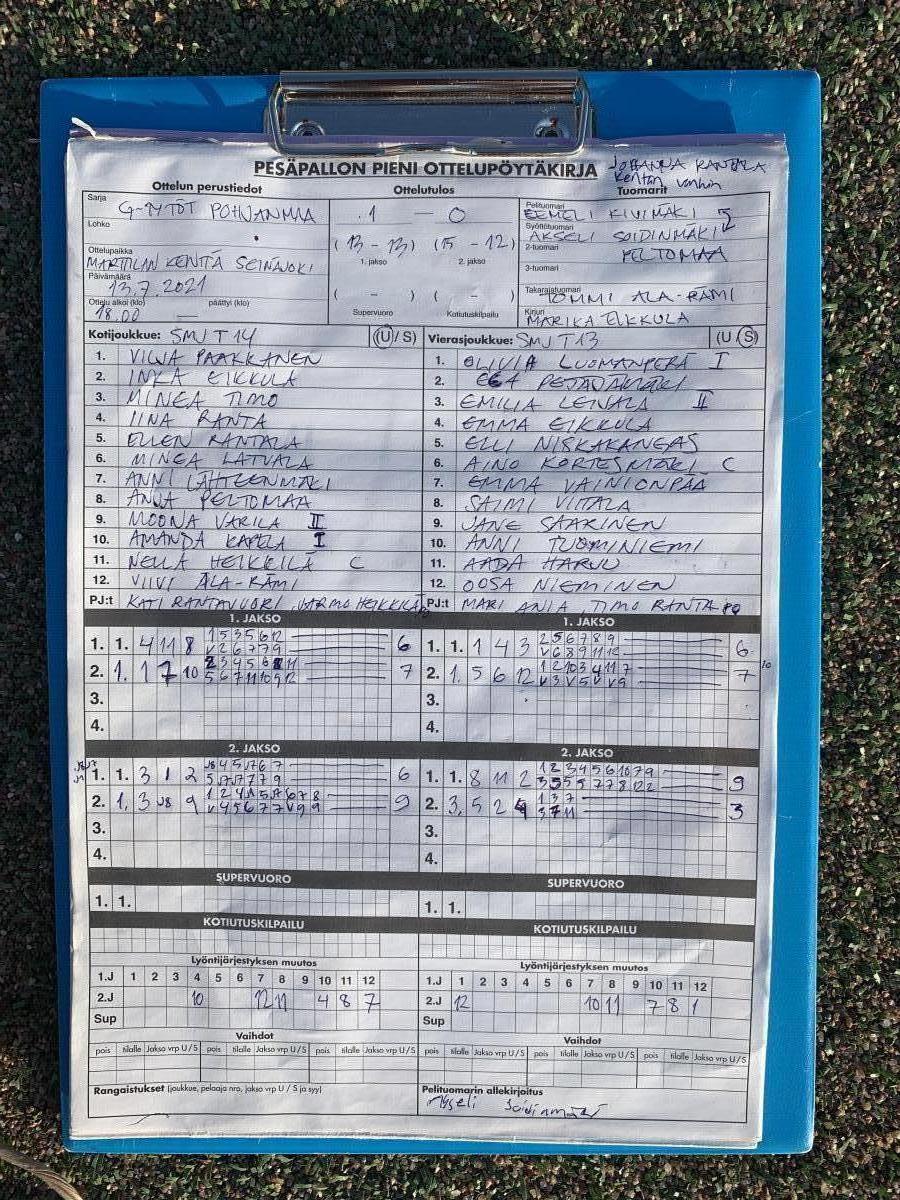 PESÄPALLON PIENI OTTELUPÖYTÄKIRJA
JOHANNA RANTALA
Kentän vanhin
Ottelun perustiedot
Ottelutulos
Tuomarit
Sarja
G-TYTÖT POHJANMAA
1 — 0
Pelituomari
EEMELI KIVIMÄKI
Lohko
Syöttötuomari
AKSELI SOIDINMÄKI
(13 - 13) (15 - 12)
2-tuomari
PELTOMAA
Ottelupaikka
MARTTILAN KENTTÄ SEINÄJOKI
1. jakso
2. jakso
3-tuomari
Päivämäärä
13.7.2021
( - ) ( - )
Takarajatuomari
TOMMI ALA-RÄMI
Ottelu alkoi (klo)
päättyi (klo)
18.00 —
Supervuoro
Kotiutuskilpailu
Kirjuri
MARIKA EIKKULA
Kotijoukkue: SMJ T14 (U / S)
Vierasjoukkue: SMJ T13 (U / S)
1. VILJA PAAKKANEN
1. OLIVIA LUOMANPERÄ I
2. INKA EIKKULA
2. PEJÄVÄMÄKI
3. MINEA TIMO
3. EMILIA LEIVALA II
4. IINA RANTA
4. EMMA EIKKULA
5. ELLEN RANTALA
5. ELLI NISKAKANGAS
6. MINEA LATVALA
6. AINO KORTESMÄKI C
7. ANNI LÄHTEENMÄKI
7. EMMA VAINIONPÄÄ
8. ANJA PELTOMAA
8. SAIMI VIITALA
9. MOONA VARILA II
9. JANE SAARINEN
10. AMANDA KAPELA I
10. ANNI TUOMINIEMI
11. NELLA HEIKKILÄ C
11. AADA HARJU
12. VIIVI ALA-RÄMI
12. OOSA NIEMINEN
PJ:t KATI RANTAVUORI, JARMO HEIKKILÄ
PJ:t MARI ANIA, TIMO RANTA
1. JAKSO
1. JAKSO
1. 1. 4 11 8 1 5 3 5 6 12 6
V 2 6 7 7 9
1. 1. 1 4 3 2 5 6 7 8 9 6
V 6 8 9 11 12
2. 1. 1 7 10 2 3 4 5 6 8 11 7
5 6 7 11 10 9 12
2. 1. 5 6 12 1 2 10 3 4 11 7 7
V 3 V 5 V V 9
3.
3.
4.
4.
2. JAKSO
2. JAKSO
1. 1. 3 1 2 6
1. 1. 8 11 2 1 2 3 4 5 6 10 7 9 9
2. 1. 3 J8 9 9
2. 3. 5 2 4 1 3 7 3
3 7 11
3.
3.
4.
4.
SUPERVUORO
SUPERVUORO
1. 1.
1. 1.
KOTIUTUSKILPAILU
KOTIUTUSKILPAILU
Lyöntijärjestyksen muutos
Lyöntijärjestyksen muutos
1.J 1 2 3 4 5 6 7 8 9 10 11 12
1.J 1 2 3 4 5 6 7 8 9 10 11 12
2.J 10 12 11 4 8 7
2.J 12 10 11 7 8 1
Sup
Sup
Vaihdot
Vaihdot
pois tilalle Jakso vrp U / S pois tilalle Jakso vrp U / S pois tilalle Jakso vrp U / S
pois tilalle Jakso vrp U / S pois tilalle Jakso vrp U / S pois tilalle Jakso vrp U / S
Rangaistukset (joukkue, pelaaja nro, jakso vrp U / S ja syy)
Pelituomarin allekirjoitus
Akseli Soidinmäki